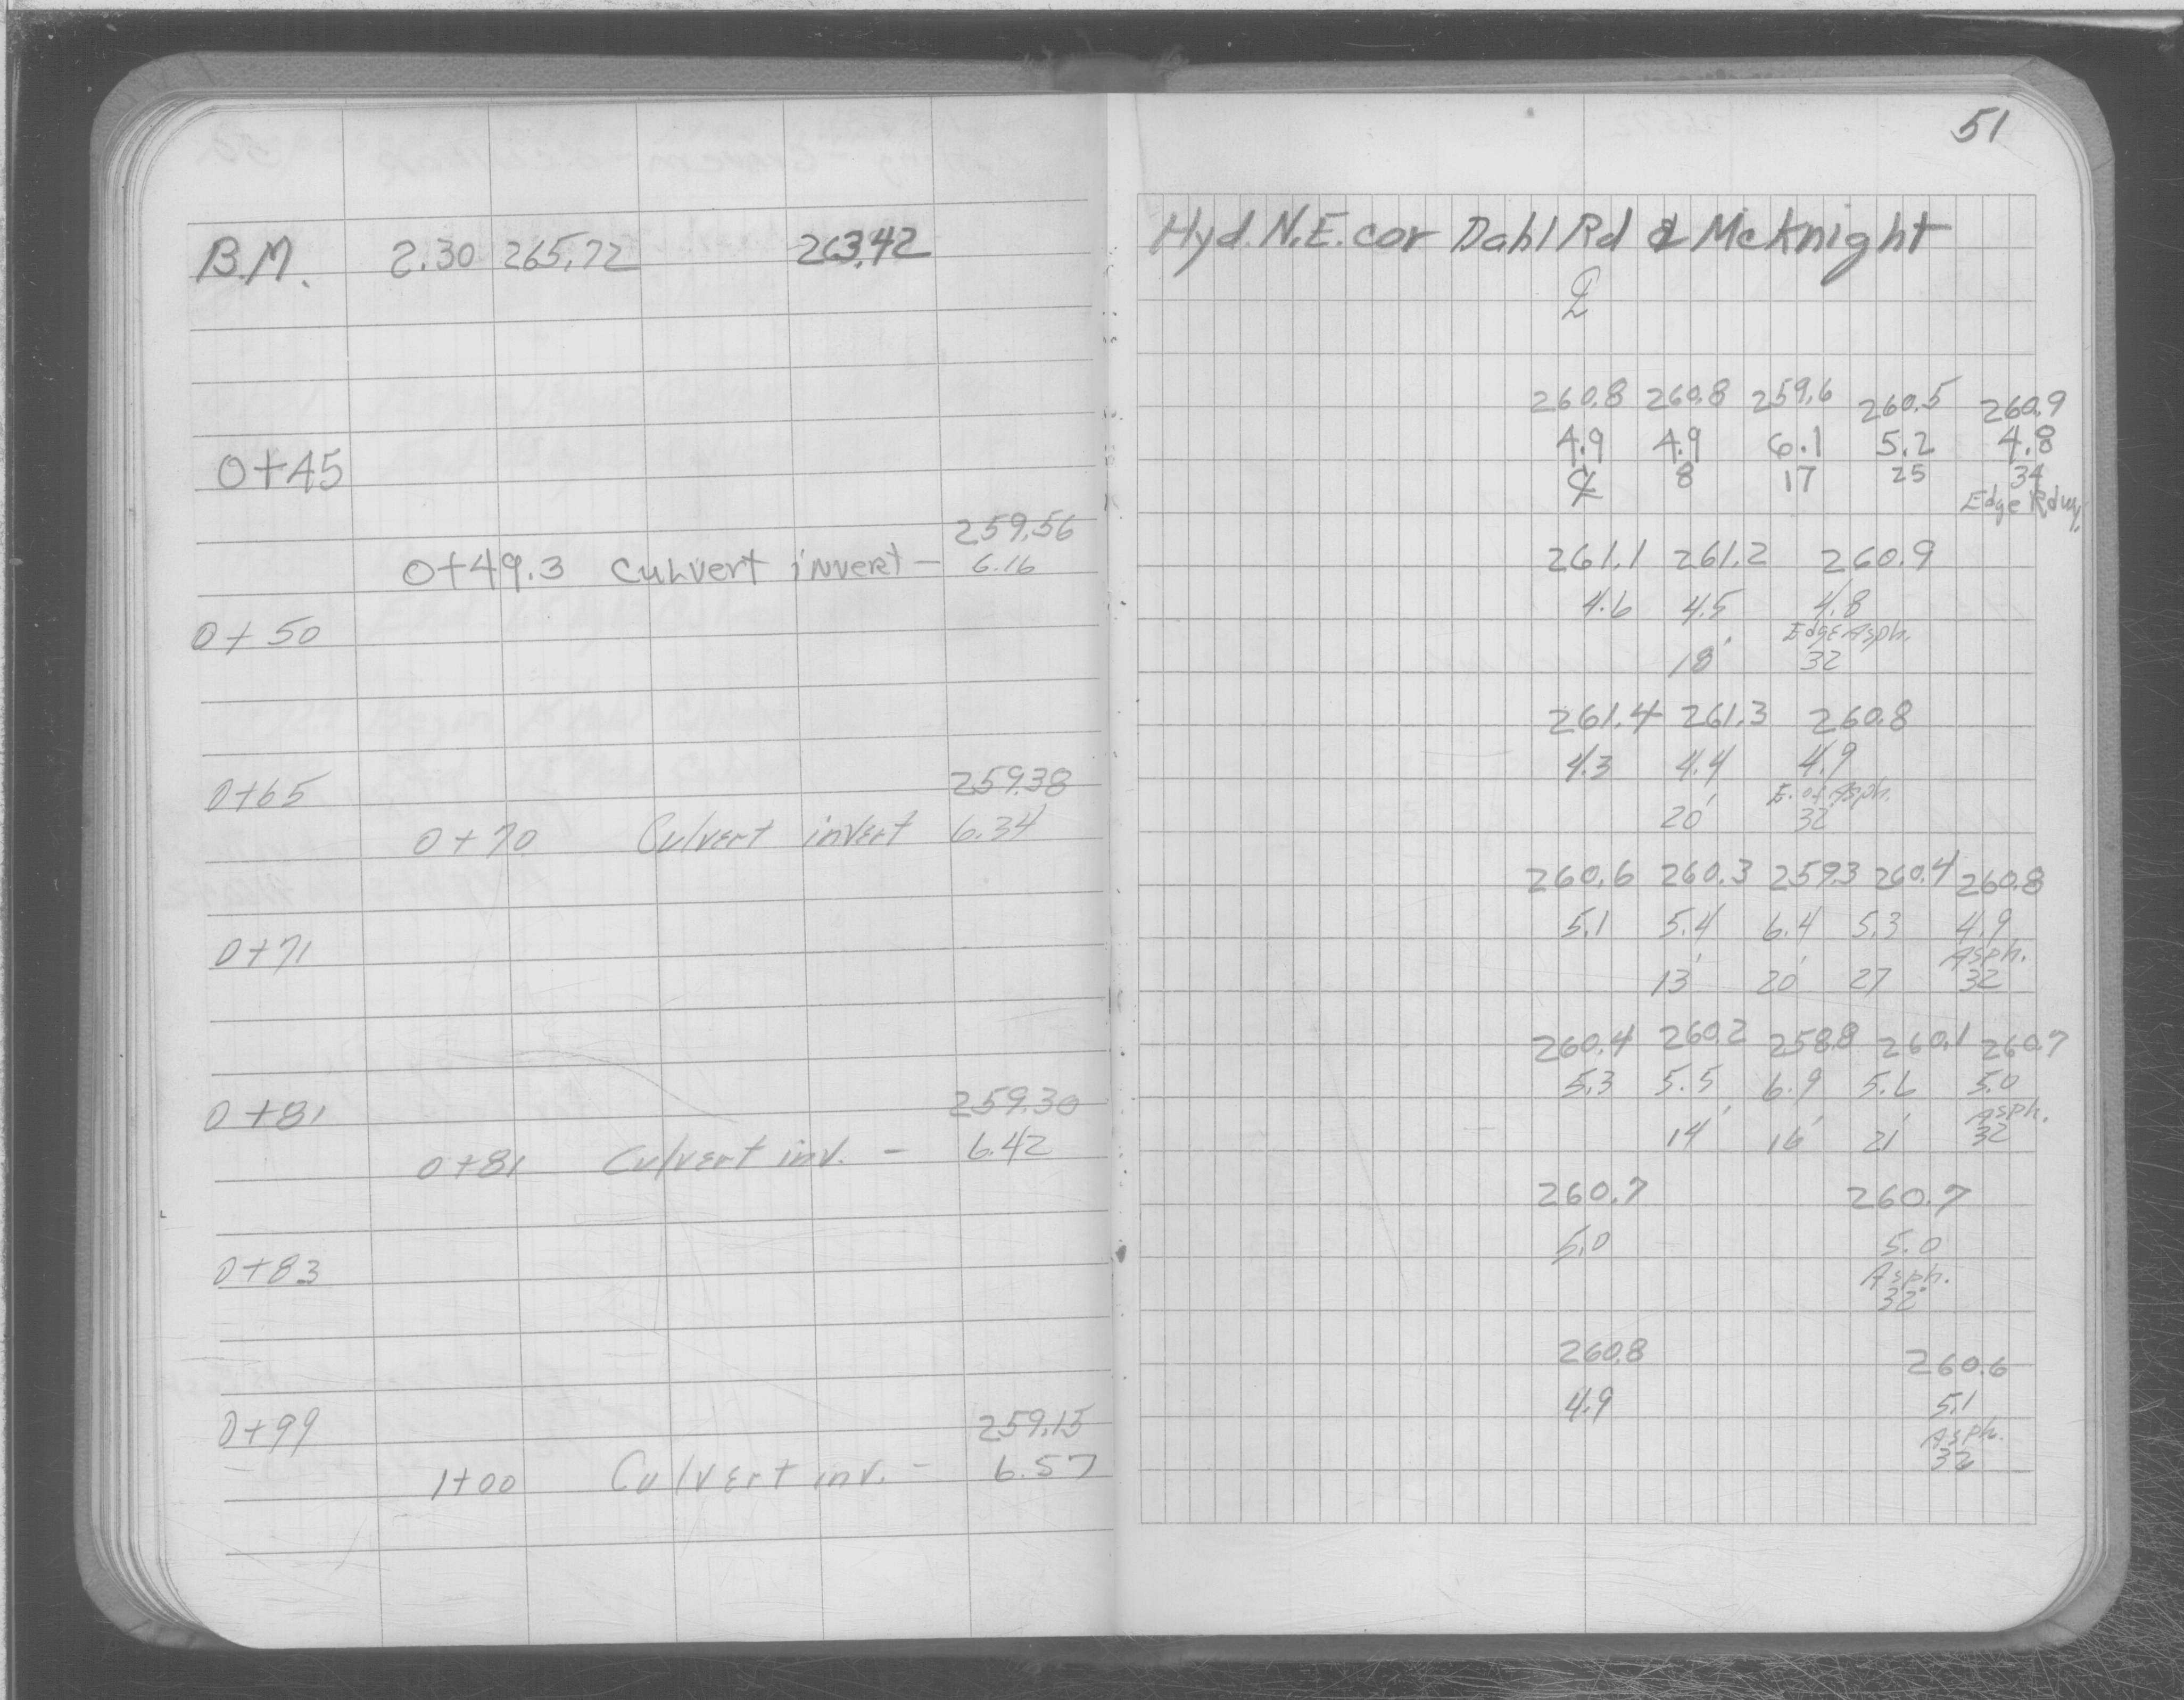 51
B.M. 2.30 265.72 263.42
0+45
259.56
0+49.3 Culvert invert - 6.16
0+50
0+65 259.38
0+70 Culvert invert 6.34
0+71
0+81 259.30
0+81 Culvert inv. - 6.42
0+83
0+99 259.15
1+00 Culvert inv. - 6.57
Hyd. N.E. cor Dahl Rd & McKnight
℄
260.8 260.8 259.6 260.5 260.9
4.9 4.9 6.1 5.2 4.8
℄ 8 17 25 34
Edge Rdwy.
261.1 261.2 260.9
4.6 4.5 4.8
Edge Asph.
18' 32
261.4 261.3 260.8
4.3 4.4 4.9
E. of Asph.
20' 32
260.6 260.3 259.3 260.4 260.8
5.1 5.4 6.4 5.3 4.9
Asph.
13' 20' 27 32
260.4 260.2 258.8 260.1 260.7
5.3 5.5 6.9 5.6 5.0
Asph.
14' 16' 21' 32
260.7 260.7
5.0 5.0
Asph.
32
260.8 260.6
4.9 5.1
Asph.
32